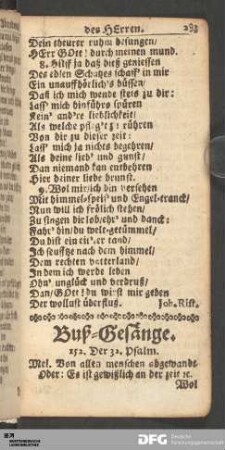 des HErren. 283
Dein theurer ruhm besungen/
HErr GOtt! durch meinen mund.
8. Hilff ja daß dieß geniessen
Des edlen Schatzes schaff' in mir
Ein unauffhörlich's büssen/
Daß ich mich wende stets zu dir:
Lass' mich hinführo spüren
Kein' andre lieblichkeit/
Als welche pflegt zu rühren
Von dir zu dieser zeit:
Lass' mich ja nichts begehren/
Als deine lieb' und gunst/
Dan niemand kan entbehren
Hier deiner liebe brunst.
9. Wol mir/ ich bin versehen
Mit himmel-speis' und Engel-tranck/
Nun will ich frölich stehen/
Zu singen dir lob/ehr' und danck:
Fahr' hin/ du welt-getümmel/
Du bist ein eitler tand/
Ich seufftze nach dem himmel/
Dem rechten vatterland/
In dem ich werde leben
Ohn' unglück und verdruß/
Dan/ GOtt! du wirst mir geben
Der wollust überfluß. Joh. Rist.
Buß-Gesänge.
152. Der 32. Psalm.
Mel. Von allen menschen abgewandt.
Oder: Es ist gewißlich an der zeit ꝛc.
Wol
DFG